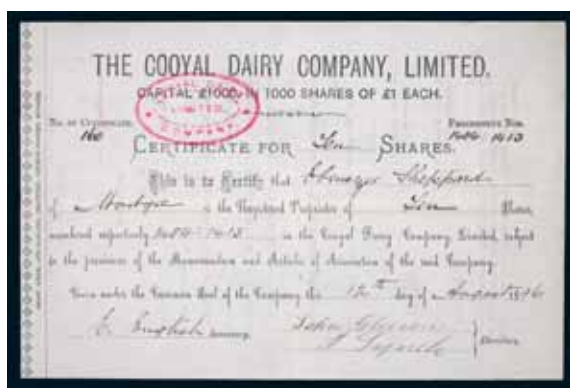 THE COOYAL DAIRY COMPANY, LIMITED.
CAPITAL £1000, IN 1000 SHARES OF £1 EACH.
COOYAL DAIRY
LIMITED
COMPANY
No. of Certificate, Progressive Nos.
160 1404 1413
CERTIFICATE FOR Ten SHARES.
This is to Certify that Ebenezer Sheppard
of is the Registered Proprietor of Ten Shares,
numbered respectively 1404-1413 in the Cooyal Dairy Company Limited, subject
to the provisions of the Memorandum and Articles of Association of the said Company.
Given under the Common Seal of the Company this 12th day of August 18
E. English Secretary. John
Directors.